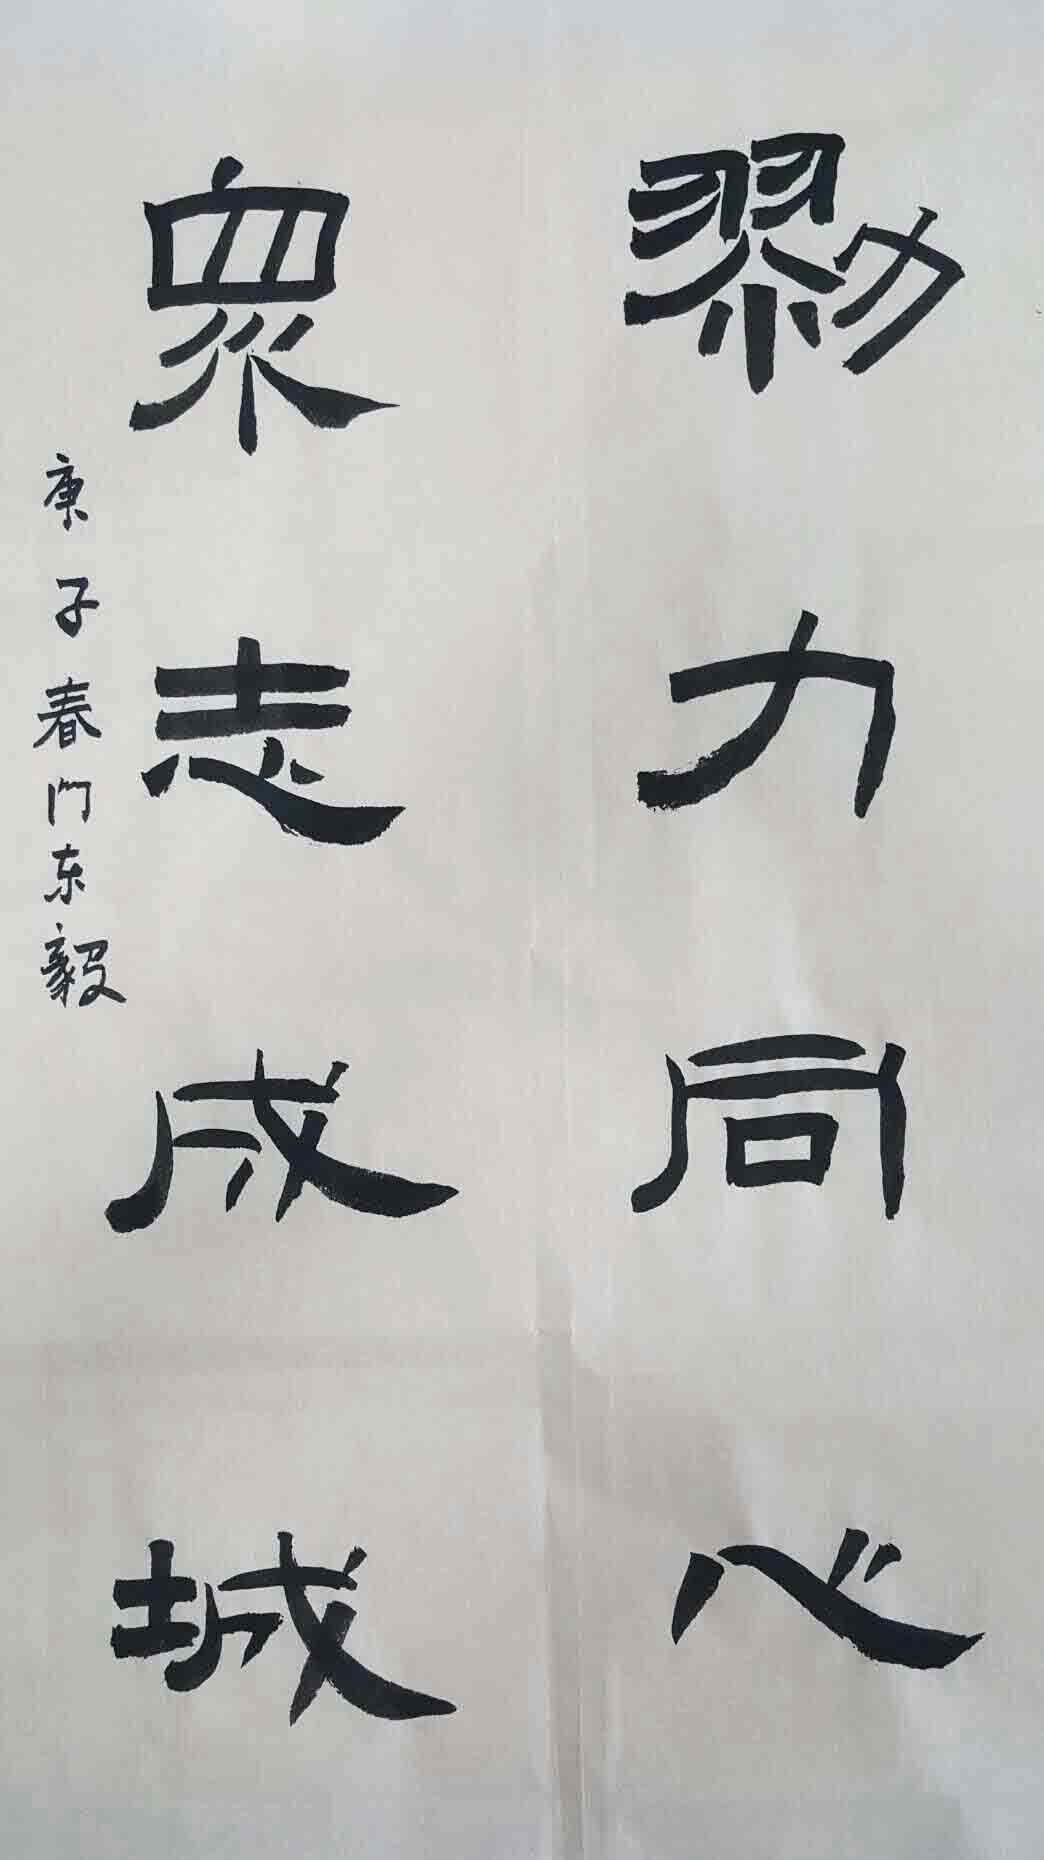 勠力同心
眾志成城
庚子春门东毅